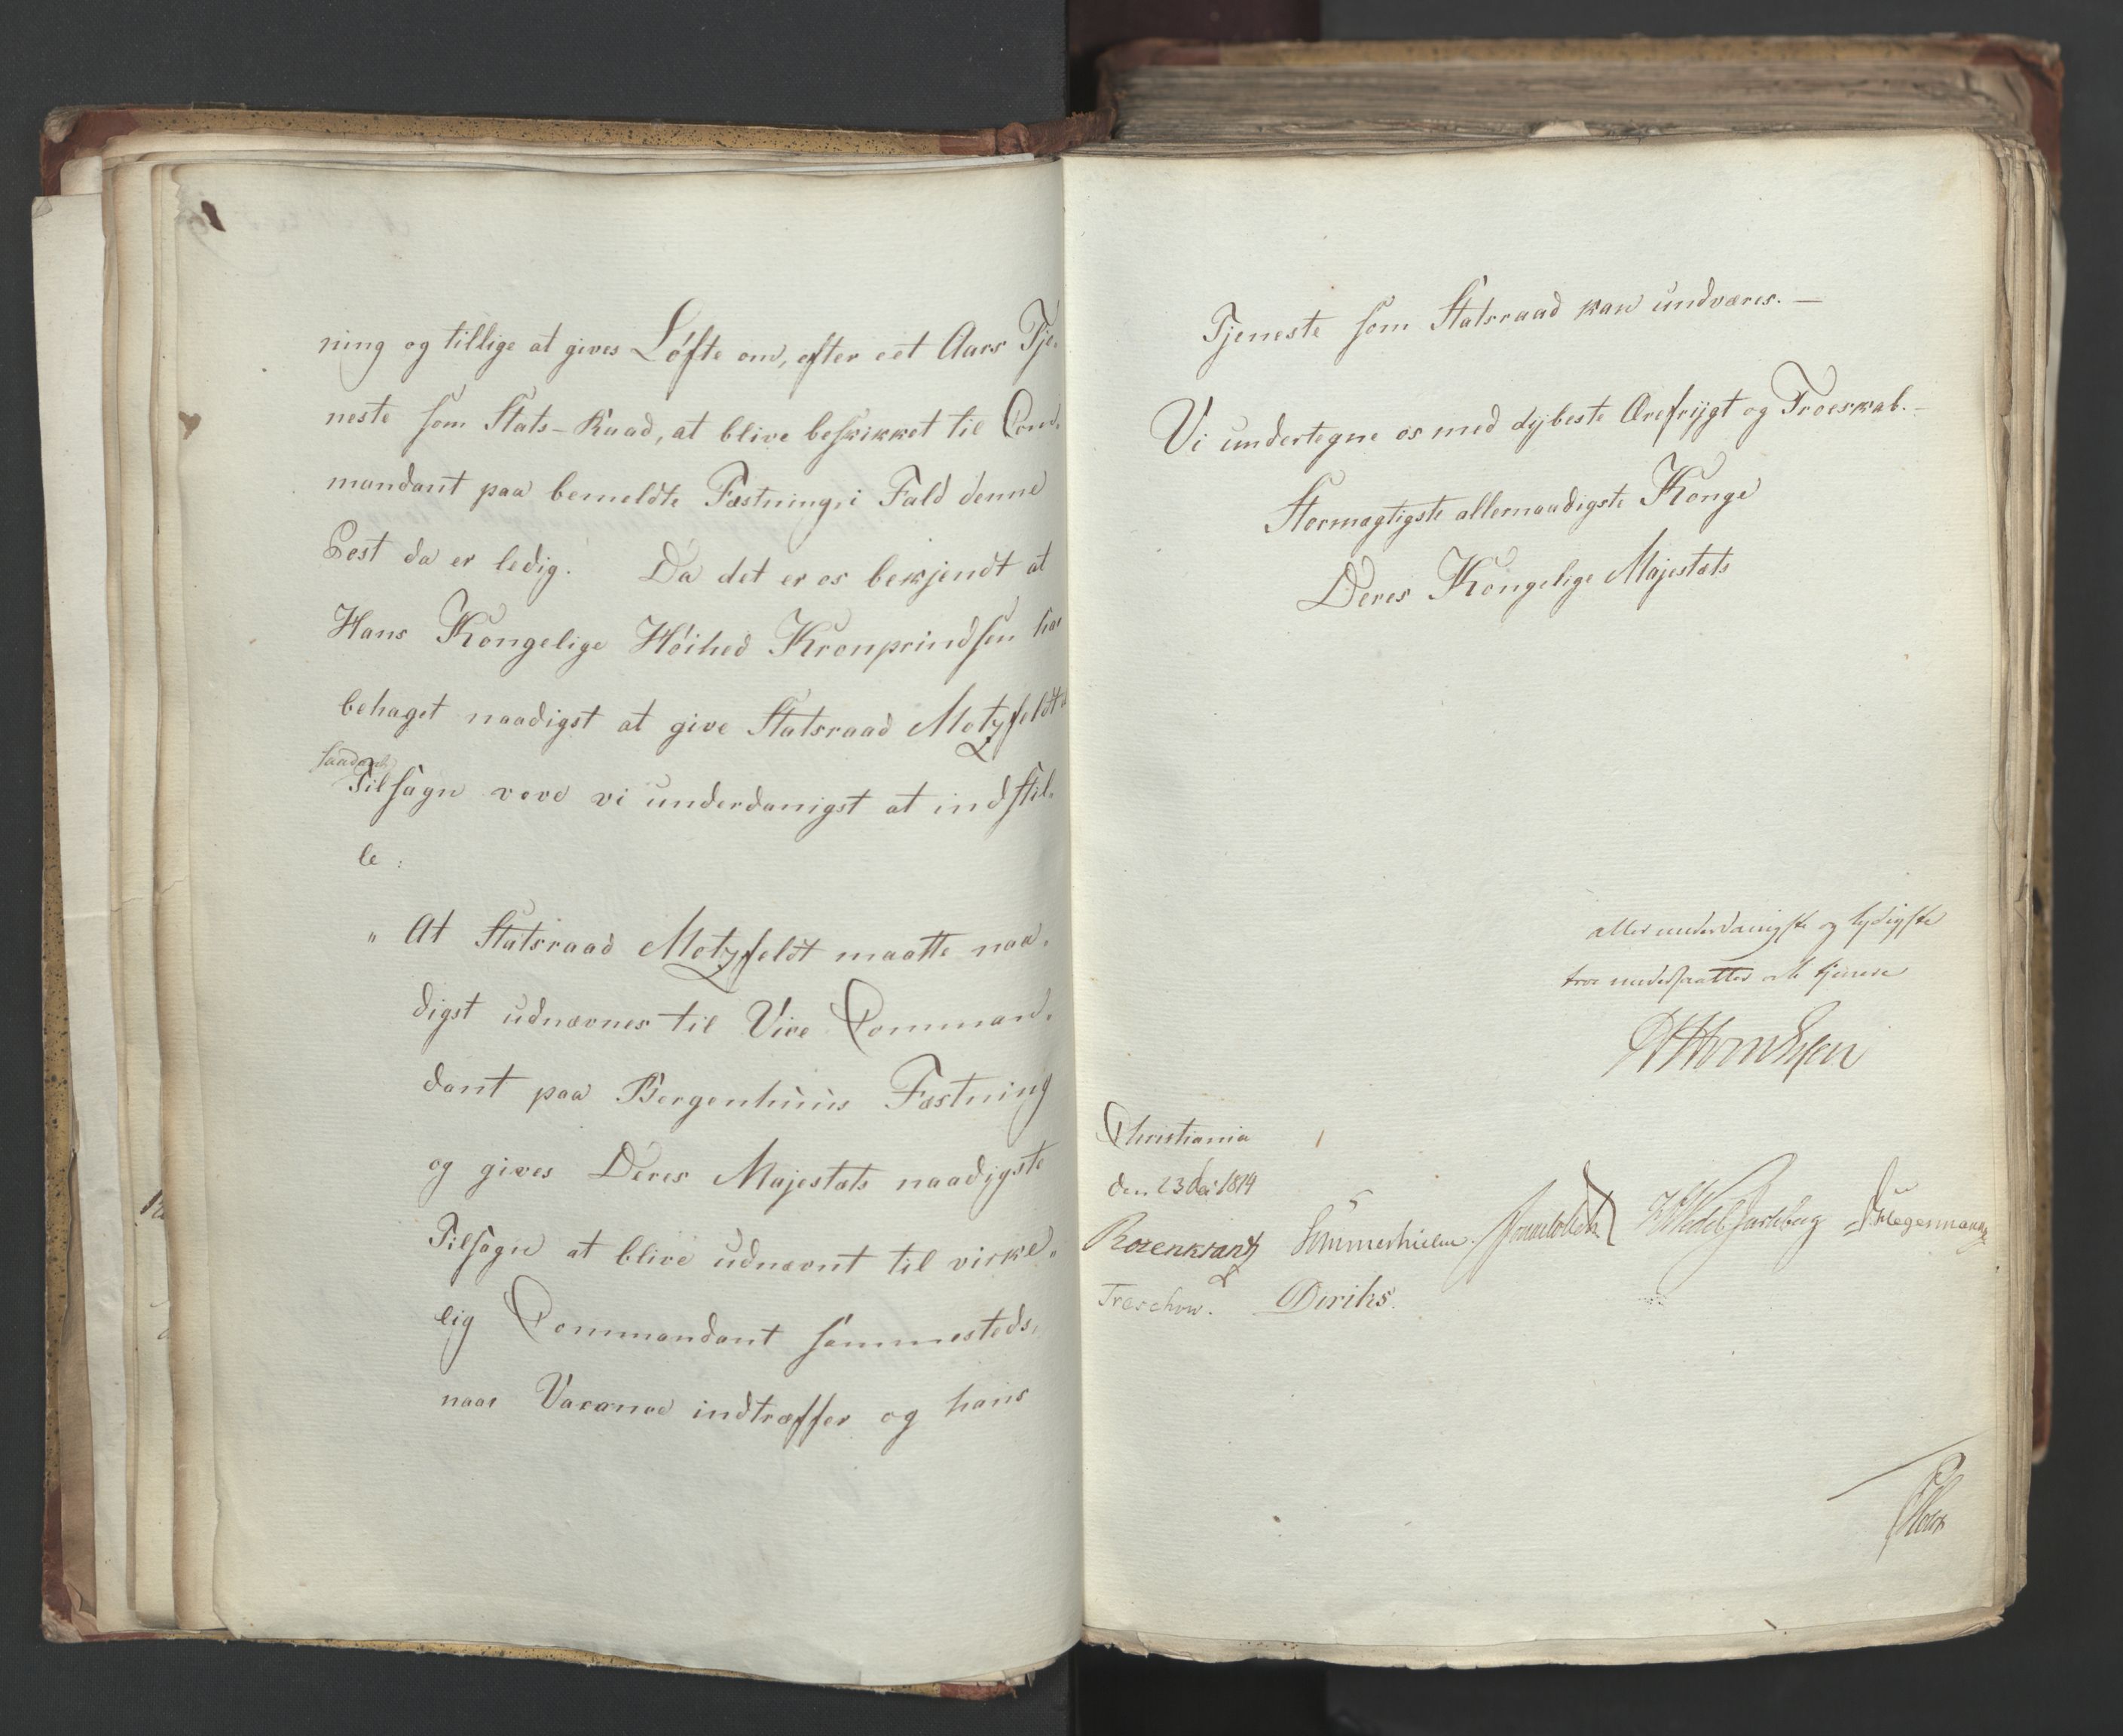 ning og tillige at gives Løfte om, efter eet Aars Tje-
neste som Stats-Raad, at blive beskikket til Com-
mandant paa bemeldte Fæstning, i Fald denne
Post da er ledig. Da det er os bekjendt at
Hans Kongelige Höihed Kronprindsen har
behaget naadigst at give Statsraad Motzfeldt
saadant
Tilsagn vove vi underdanigst at indstil-
le :
" At Statsraad Motzfeldt maatte naa-
digst udnævnes til Vice Comman-
dant paa Bergenhuus Fæstning
og gives Deres Majestæts naadigste
Tilsagn at blive udnævnt til virke-
lig Commandant sammesteds,
naar Vacance indtræffer og hans
Tjeneste som Statsraad kan undværes. —
Vi undertegne os med dybeste Ærefrygt og Troeskab. -
Stormægtigste allernaadigste Konge
Deres Kongelige Majestæts
allerunderdanigste og lydigste
troe undersaatter og tjenere
Christiania
den 23 Dec 1814
Rosenkrantz Sommerhielm. Wedel Jarlsberg Hegermann
Treschow. Diriks.